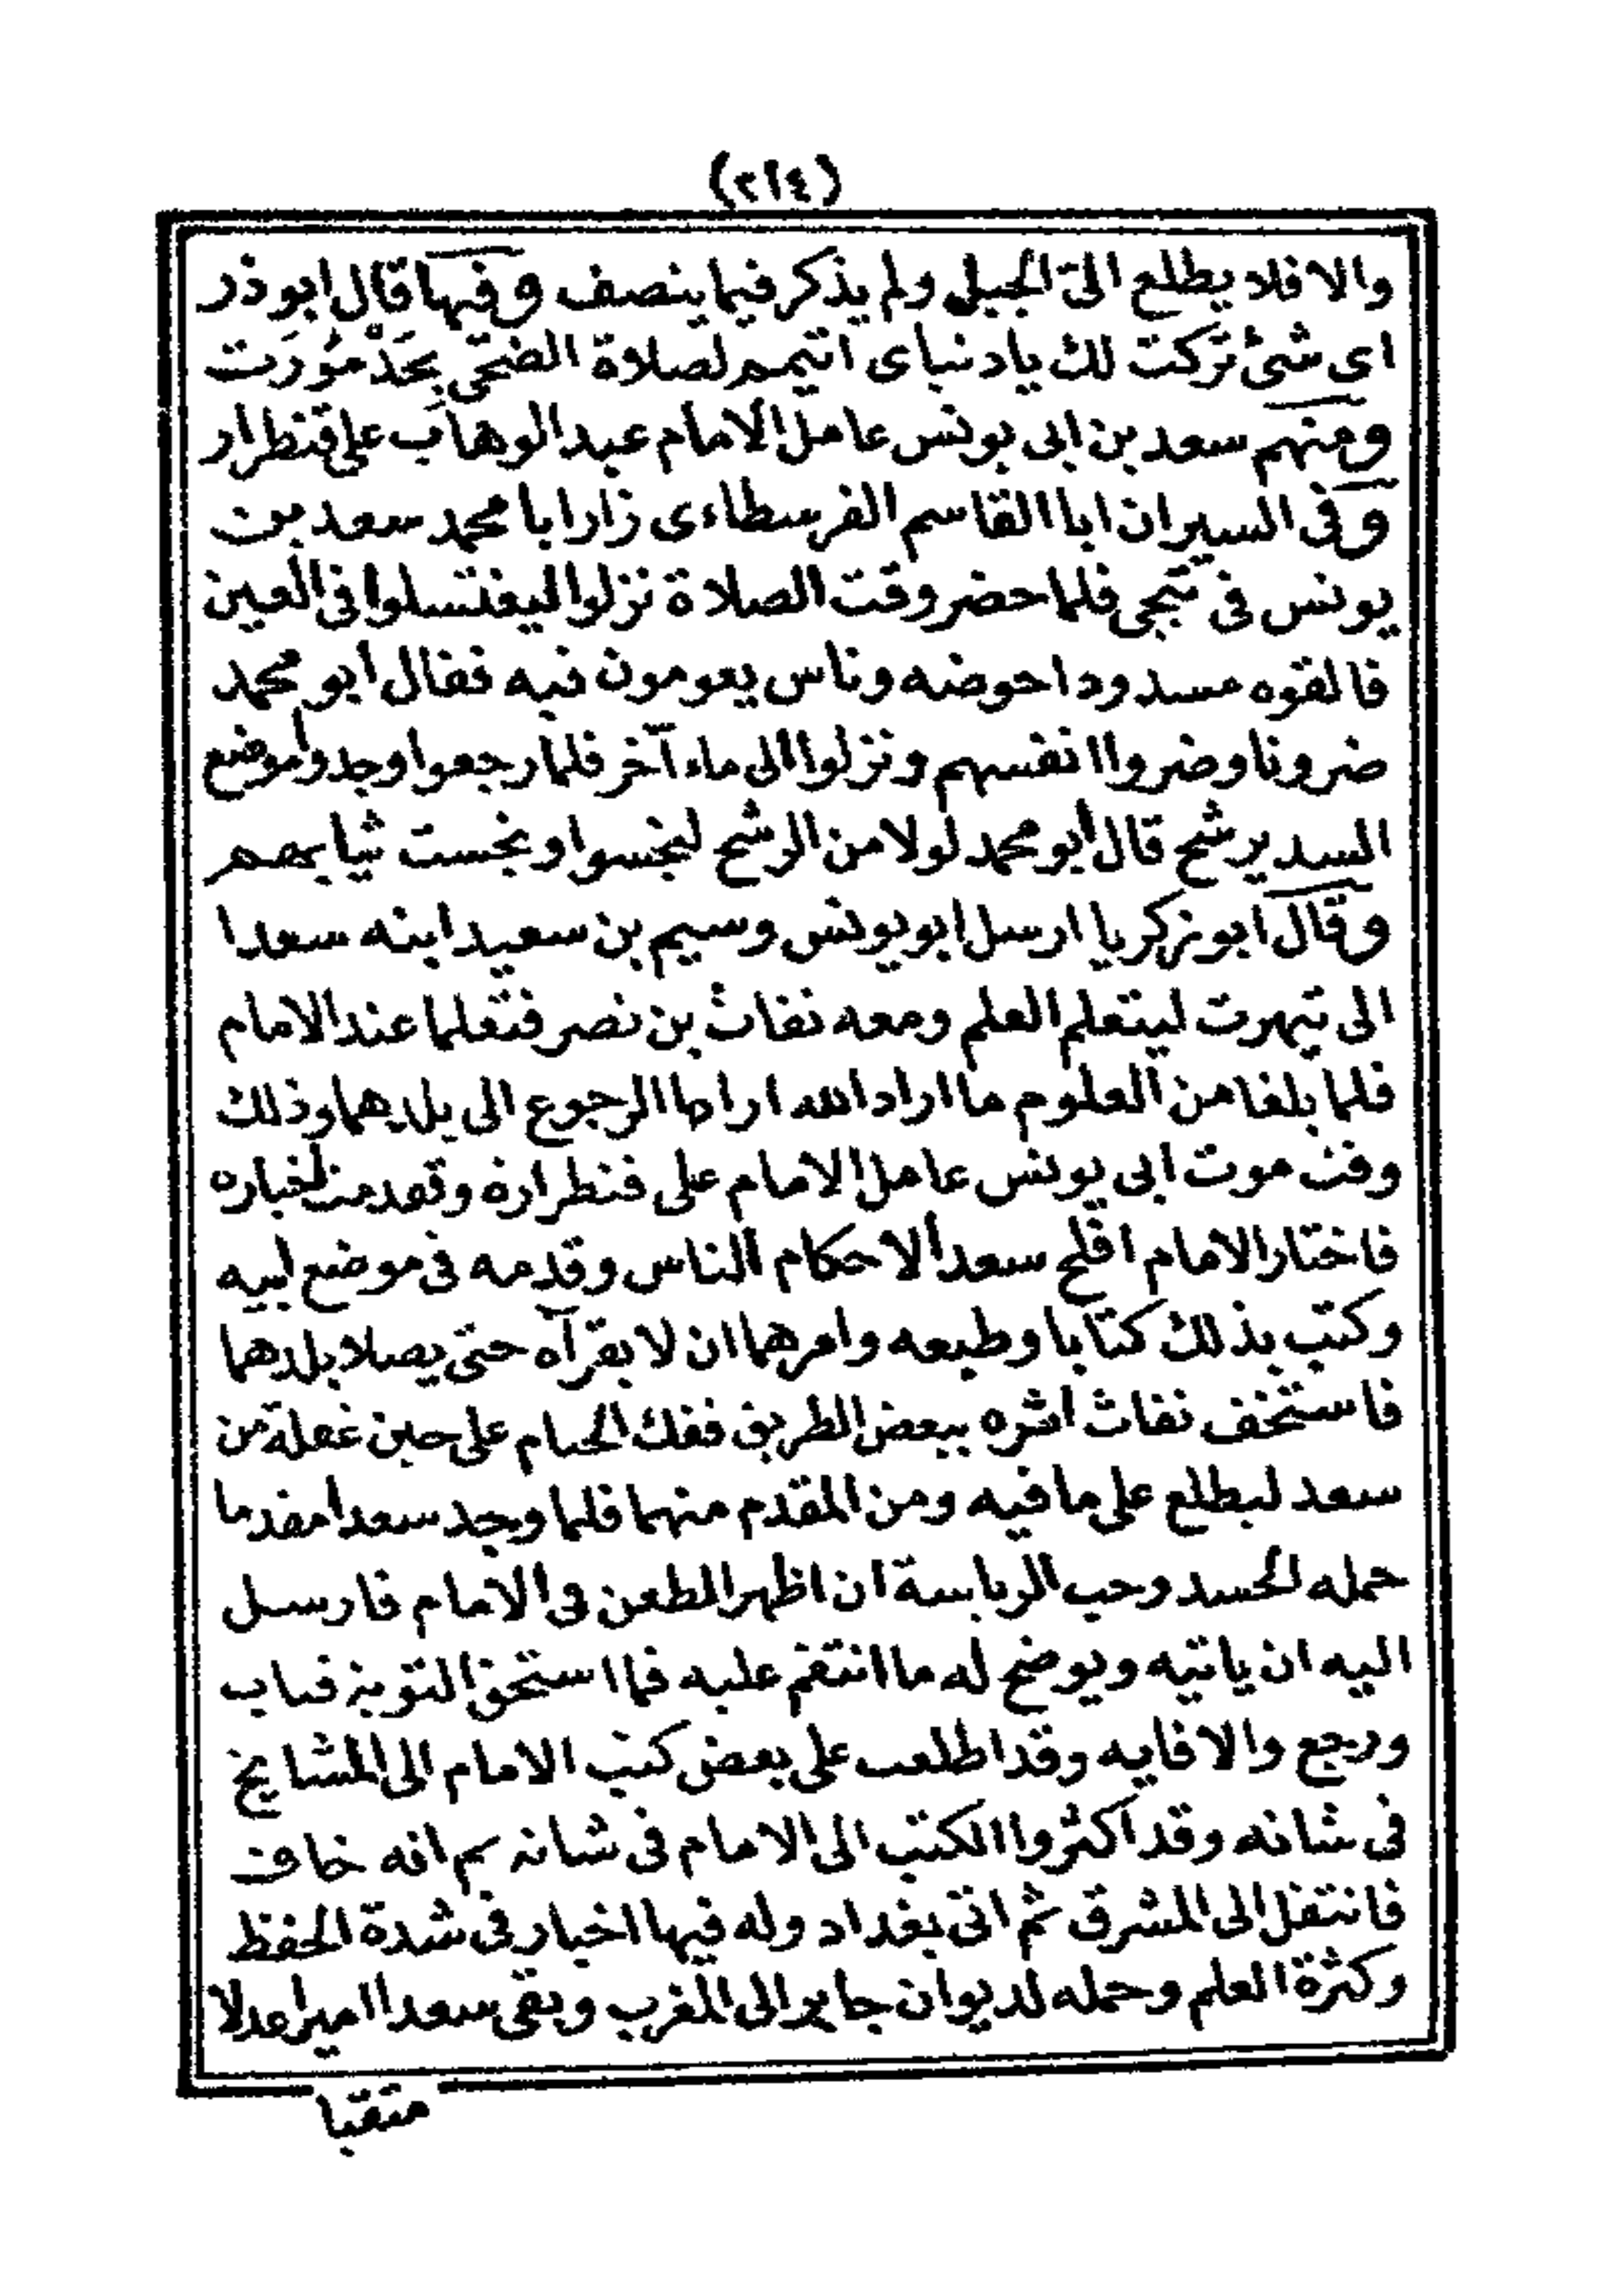 (٢١٤)
والا فلا يطلع الى الجبل ولم يذكر فيما ينصف وفيها قال ابو ذر
اى شئ تركت لك يا دنياى اتيمم لصلاة الضحى بحد مورت
ومنهم سعد بن ابى يونس عامل الامام عبد الوهاب على قنطرار
وفى السير ان ابا القاسم الفرسطاءى زار ابا محمد سعد بن
يونس فى تجى فلما حضر وقت الصلاة نزلوا ليغتسلوا فى العين
فالقوه مسدودا حوضه وناس يعومون فيه فقال أبو محمد
ضرونا وضروا انفسهم ونزلوا الى ماء آخر فلما رجعوا وجدوا موضع
السد يرشح قال أبو محمد لولا من الرشح لنجسوا ونجست ثيابهم
وقال ابو زكريا ارسل ابو يونس وسيم بن سعيد ابنه سعدا
الى تيهرت ليتعلم العلم ومعه نفاث بن نصر فتعلما عند الامام
فلما بلغا من العلوم ما اراد الله ارادا الرجوع الى بلدهما وذلك
وقت موت ابى يونس عامل الامام على قنطراره وقد مت اخباره
فاختار الامام افلح سعدا لاحكام الناس وقدمه فى موضع ابيه
وكتب بذلك كتابا وطبعه وامرهما ان لا يقرآه حتى يصلا بلدهما
فاستخف نفاث اشره ببعض الطريق ففك الختام على حين غفلة من
سعد ليطلع على ما فيه ومن المقدم منهما فلما وجد سعدا مقدما
حمله الحسد وحب الرياسة ان اظهر الطعن فى الامام فارسل
اليه ان ياتيه ويوضح له ما انتقم عليه فما استحق التوبة فتاب
ورجع والا فايه وقد اطلعت على بعض كتب الامام الى المشايخ
فى شانه وقد اكثروا الكتب الى الامام فى شانه ثم انه خاف
فانتقل الى المشرق ثم اتى بغداد وله فيها اخبار فى شدة الحفظ
وكثرة العلم وحمله لديوان جابر الى المغرب وبقى سعدا اميرا عدلا
متقيا